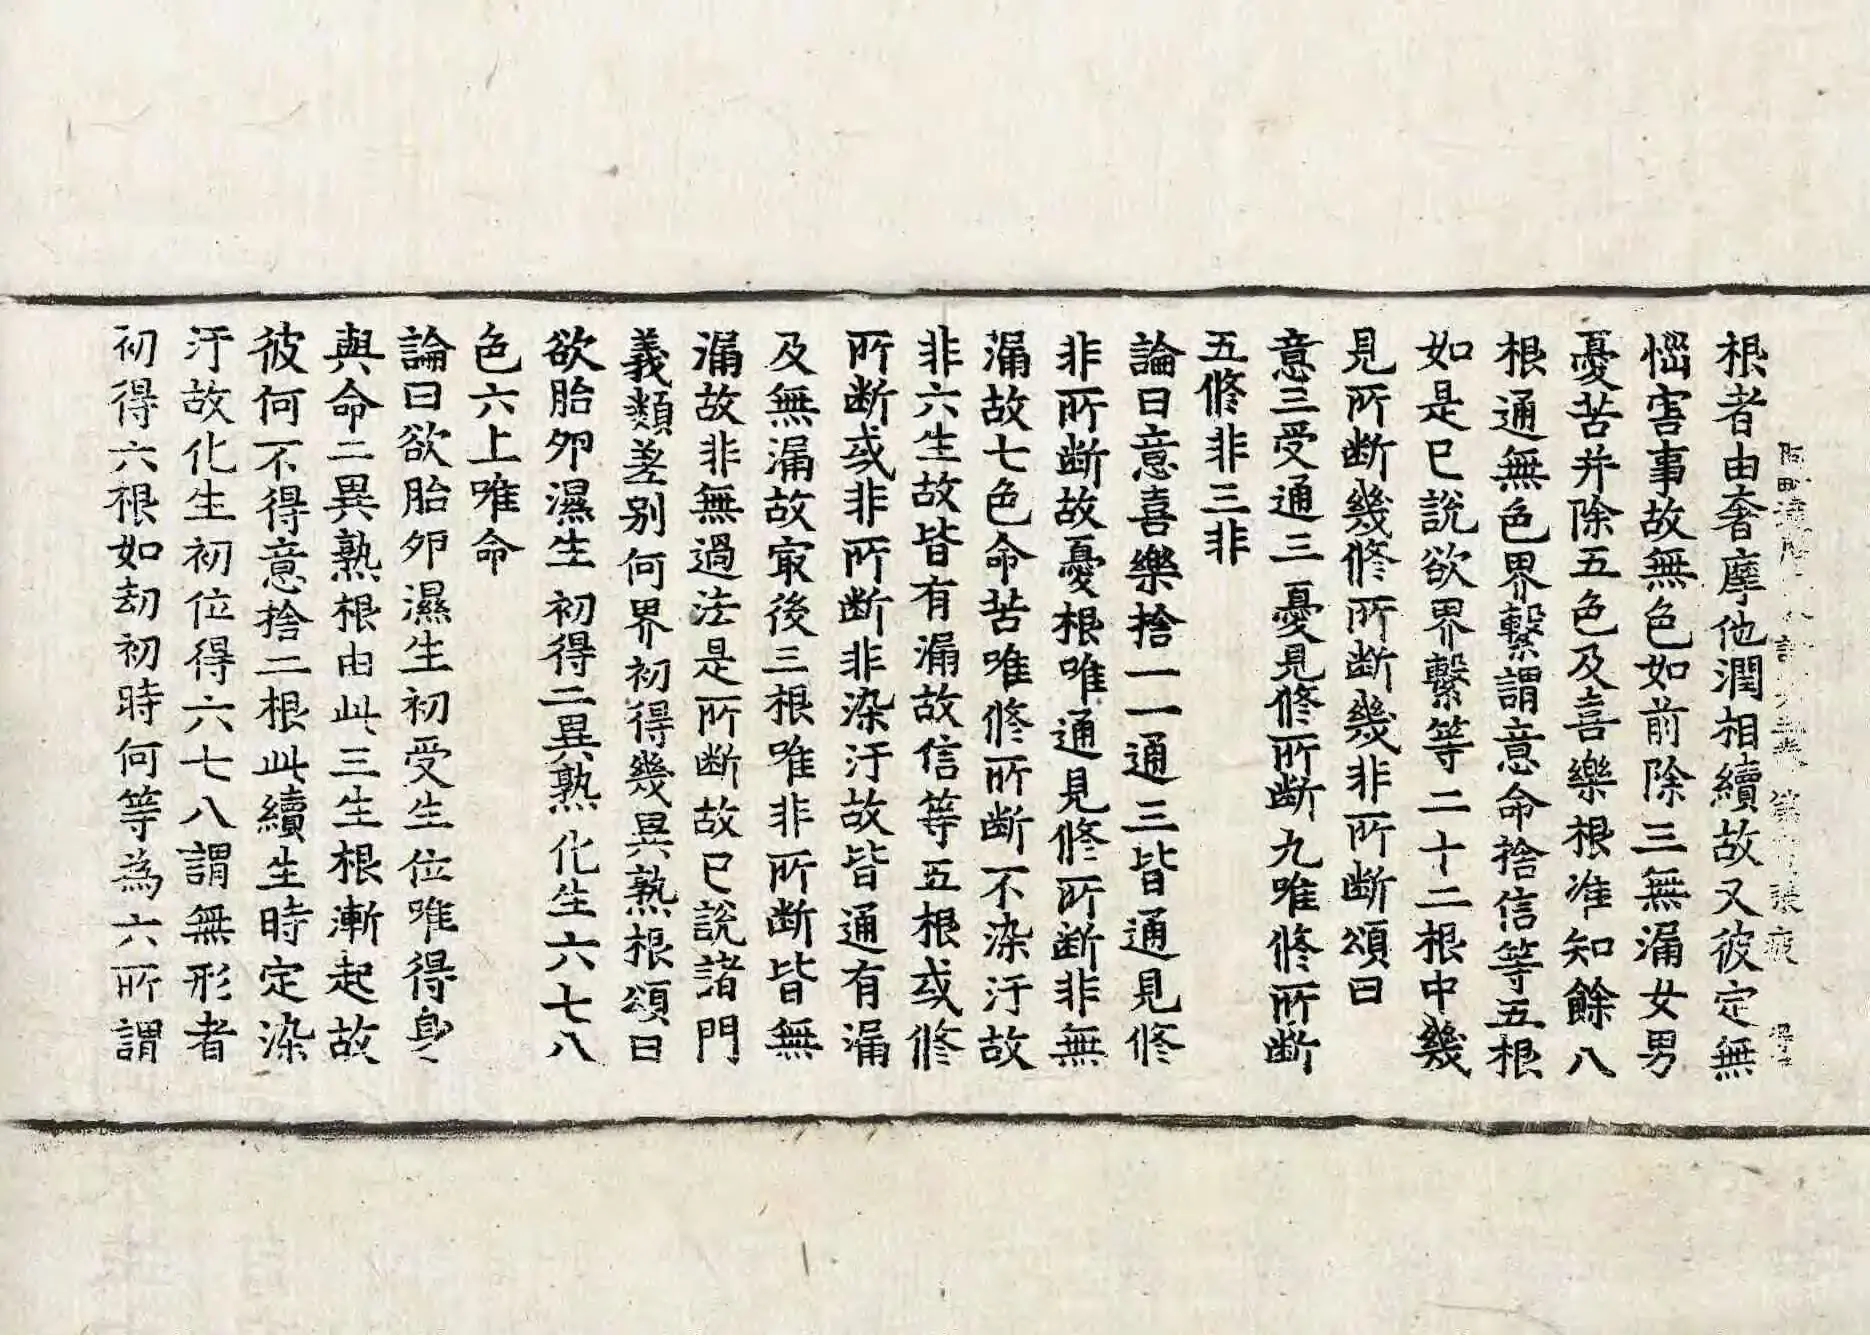 根者由奢摩他潤相續故又彼定無
惱害事故無色如前除三無漏女男
憂苦并除五色及喜樂根准知餘八
根通無色界繫謂意命捨信等五根
如是已說欲界繫等二十二根中幾
見所斷幾修所斷幾非所斷頌曰
意三受通三 憂見修所斷 九唯修所斷
五修非三非
論曰意喜樂捨一一通三皆通見修
非所斷故憂根唯通見修所斷非無
漏故七色命苦唯修所斷不染汙故
非六生故皆有漏故信等五根或修
所斷或非所斷非染汙故皆通有漏
及無漏故㝡後三根唯非所斷皆無
漏故非無過法是所斷故已說諸門
義類差別何界初得幾異熟根頌曰
欲胎卵濕生 初得二異熟 化生六七八
色六上唯命
論曰欲胎卵濕生初受生位唯得身
與命二異熟根由此三生根漸起故
彼何不得意捨二根此續生時定染
汙故化生初位得六七八謂無形者
初得六根如劫初時何等為六所謂